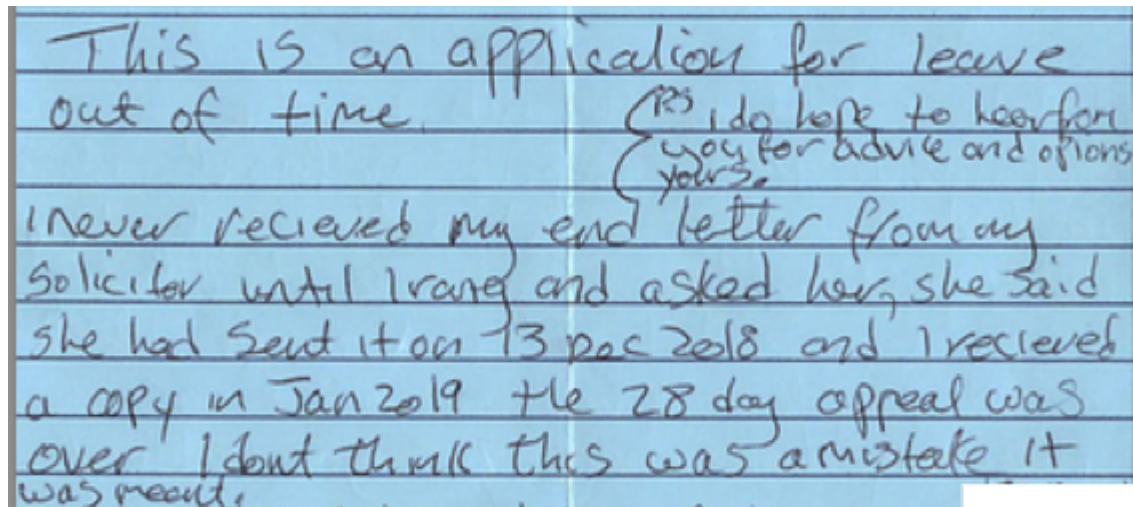 This is an application for leave
out of time.
PS i do hope to hear from
you for advice and options
yours.
I never recieved my end letter from my
Solicitor until I rang and asked her, she said
she had sent it on 13 Dec 2018 and I recieved
a copy in Jan 2019 the 28 day appeal was
over I dont think this was a mistake it
was meant.